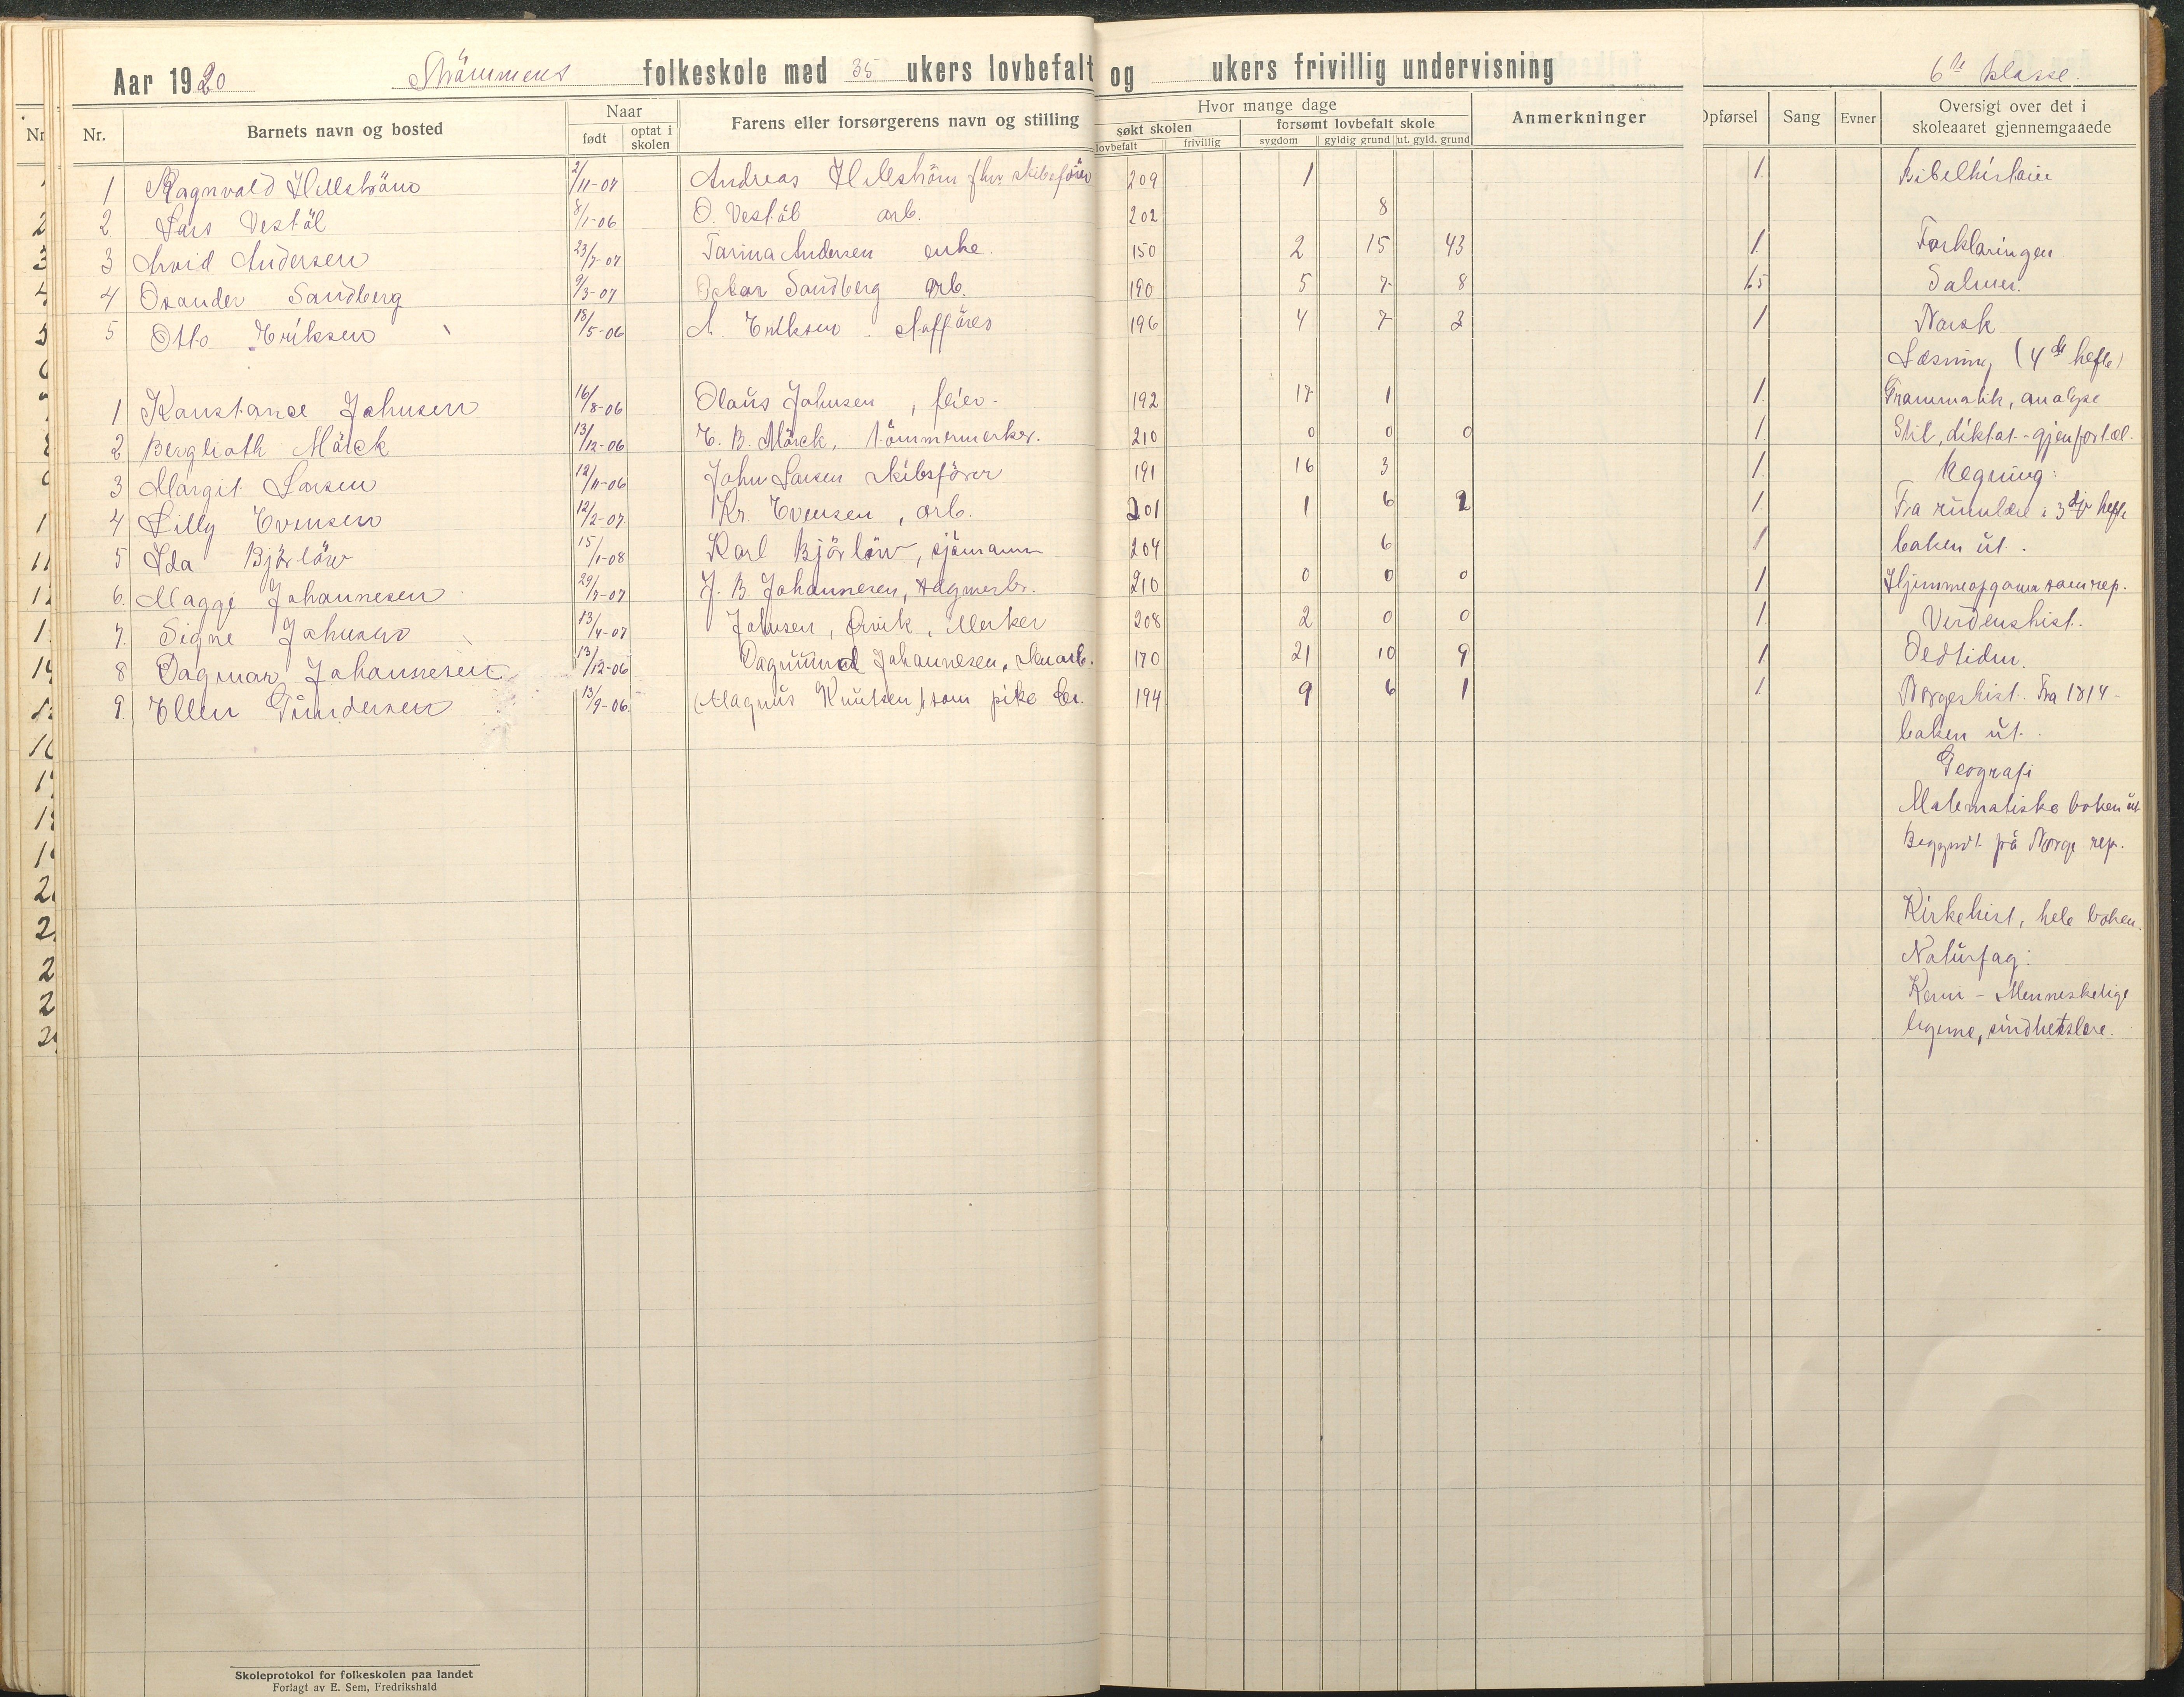 Aar 1920 Strömmens folkeskole med 35 ukers lovbefalt og ukers frivillig undervisning 6te klasse.
Nr. Barnets navn og bosted Naar født optat i skolen Farens eller forsørgerens navn og stilling Hvor mange dage søkt skolen lovbefalt frivillig forsømt lovbefalt skole sygdom gyldig grund ut. gyld. grund Anmerkninger Opførsel Sang Evner Oversigt over det i skoleaaret gjennemgaaede
1 Ragnvald Hellström 2/11-07 Andreas Hellström fhv. skibsfører 209 1 1. Bibelhistorie
2 Lars Vestöl 8/1-06 O. Vestöl arb. 202 8
3 Arvid Andersen 23/7-07 Tarina Andersen enke. 150 2 15 43 1. Forklaringen.
4 Osander Sandberg 9/3-07 Oskar Sandberg arb. 190 5 7 8 1.5 Salmer.
5 Otto Eriksen 18/5-06 A. Eriksen 196 4 7 3 1 Norsk
Læsning (4de hefte)
1 Konstance Johnsen 16/8-06 Olaus Johnsen, feier. 192 17 1 1. Grammatik, analyse
2 Berglioth Mörck 13/12-06 E. B. Mörck, tömmermerker. 210 0 0 0 1. Stil, diktat - gjenfortæl.
3 Margit Larsen 12/11-06 John Larsen skibsfører 191 16 3 1. Regning:
4 Lilly Evensen 12/2-07 Kr. Evensen, arb. 201 1 6 2 1. Fra i 3dje hefte
5 Ida Björlöw 15/1-08 Karl Björlöw, sjömann 204 6 1 boken ut.
6. Maggi Johannesen 29/7-07 J. B. Johannesen, 210 0 0 0 1 Hjemmeopgaver som rep.
7. Signe Johnsen 13/4-07 Johnsen, Merker 208 2 0 0 1. Verdenshist.
8 Dagmar Johannesen 13/12-06 Dagmund Johannesen, 170 21 10 9 1 Oldtiden.
9. Ellen Gundersen 13/9-06. (Magnus Knutsen) som pike 194 9 6 1 1. Norgeshist. Fra 1814 -
boken ut.
Geografi
Matematiske boken ut
Begyndt på Norge rep.
Kirkehist, hele boken.
Naturfag:
Kemi - Menneskelige
legeme, sundhetslære.
Skoleprotokol for folkeskolen paa landet
Forlagt av E. Sem, Fredrikshald